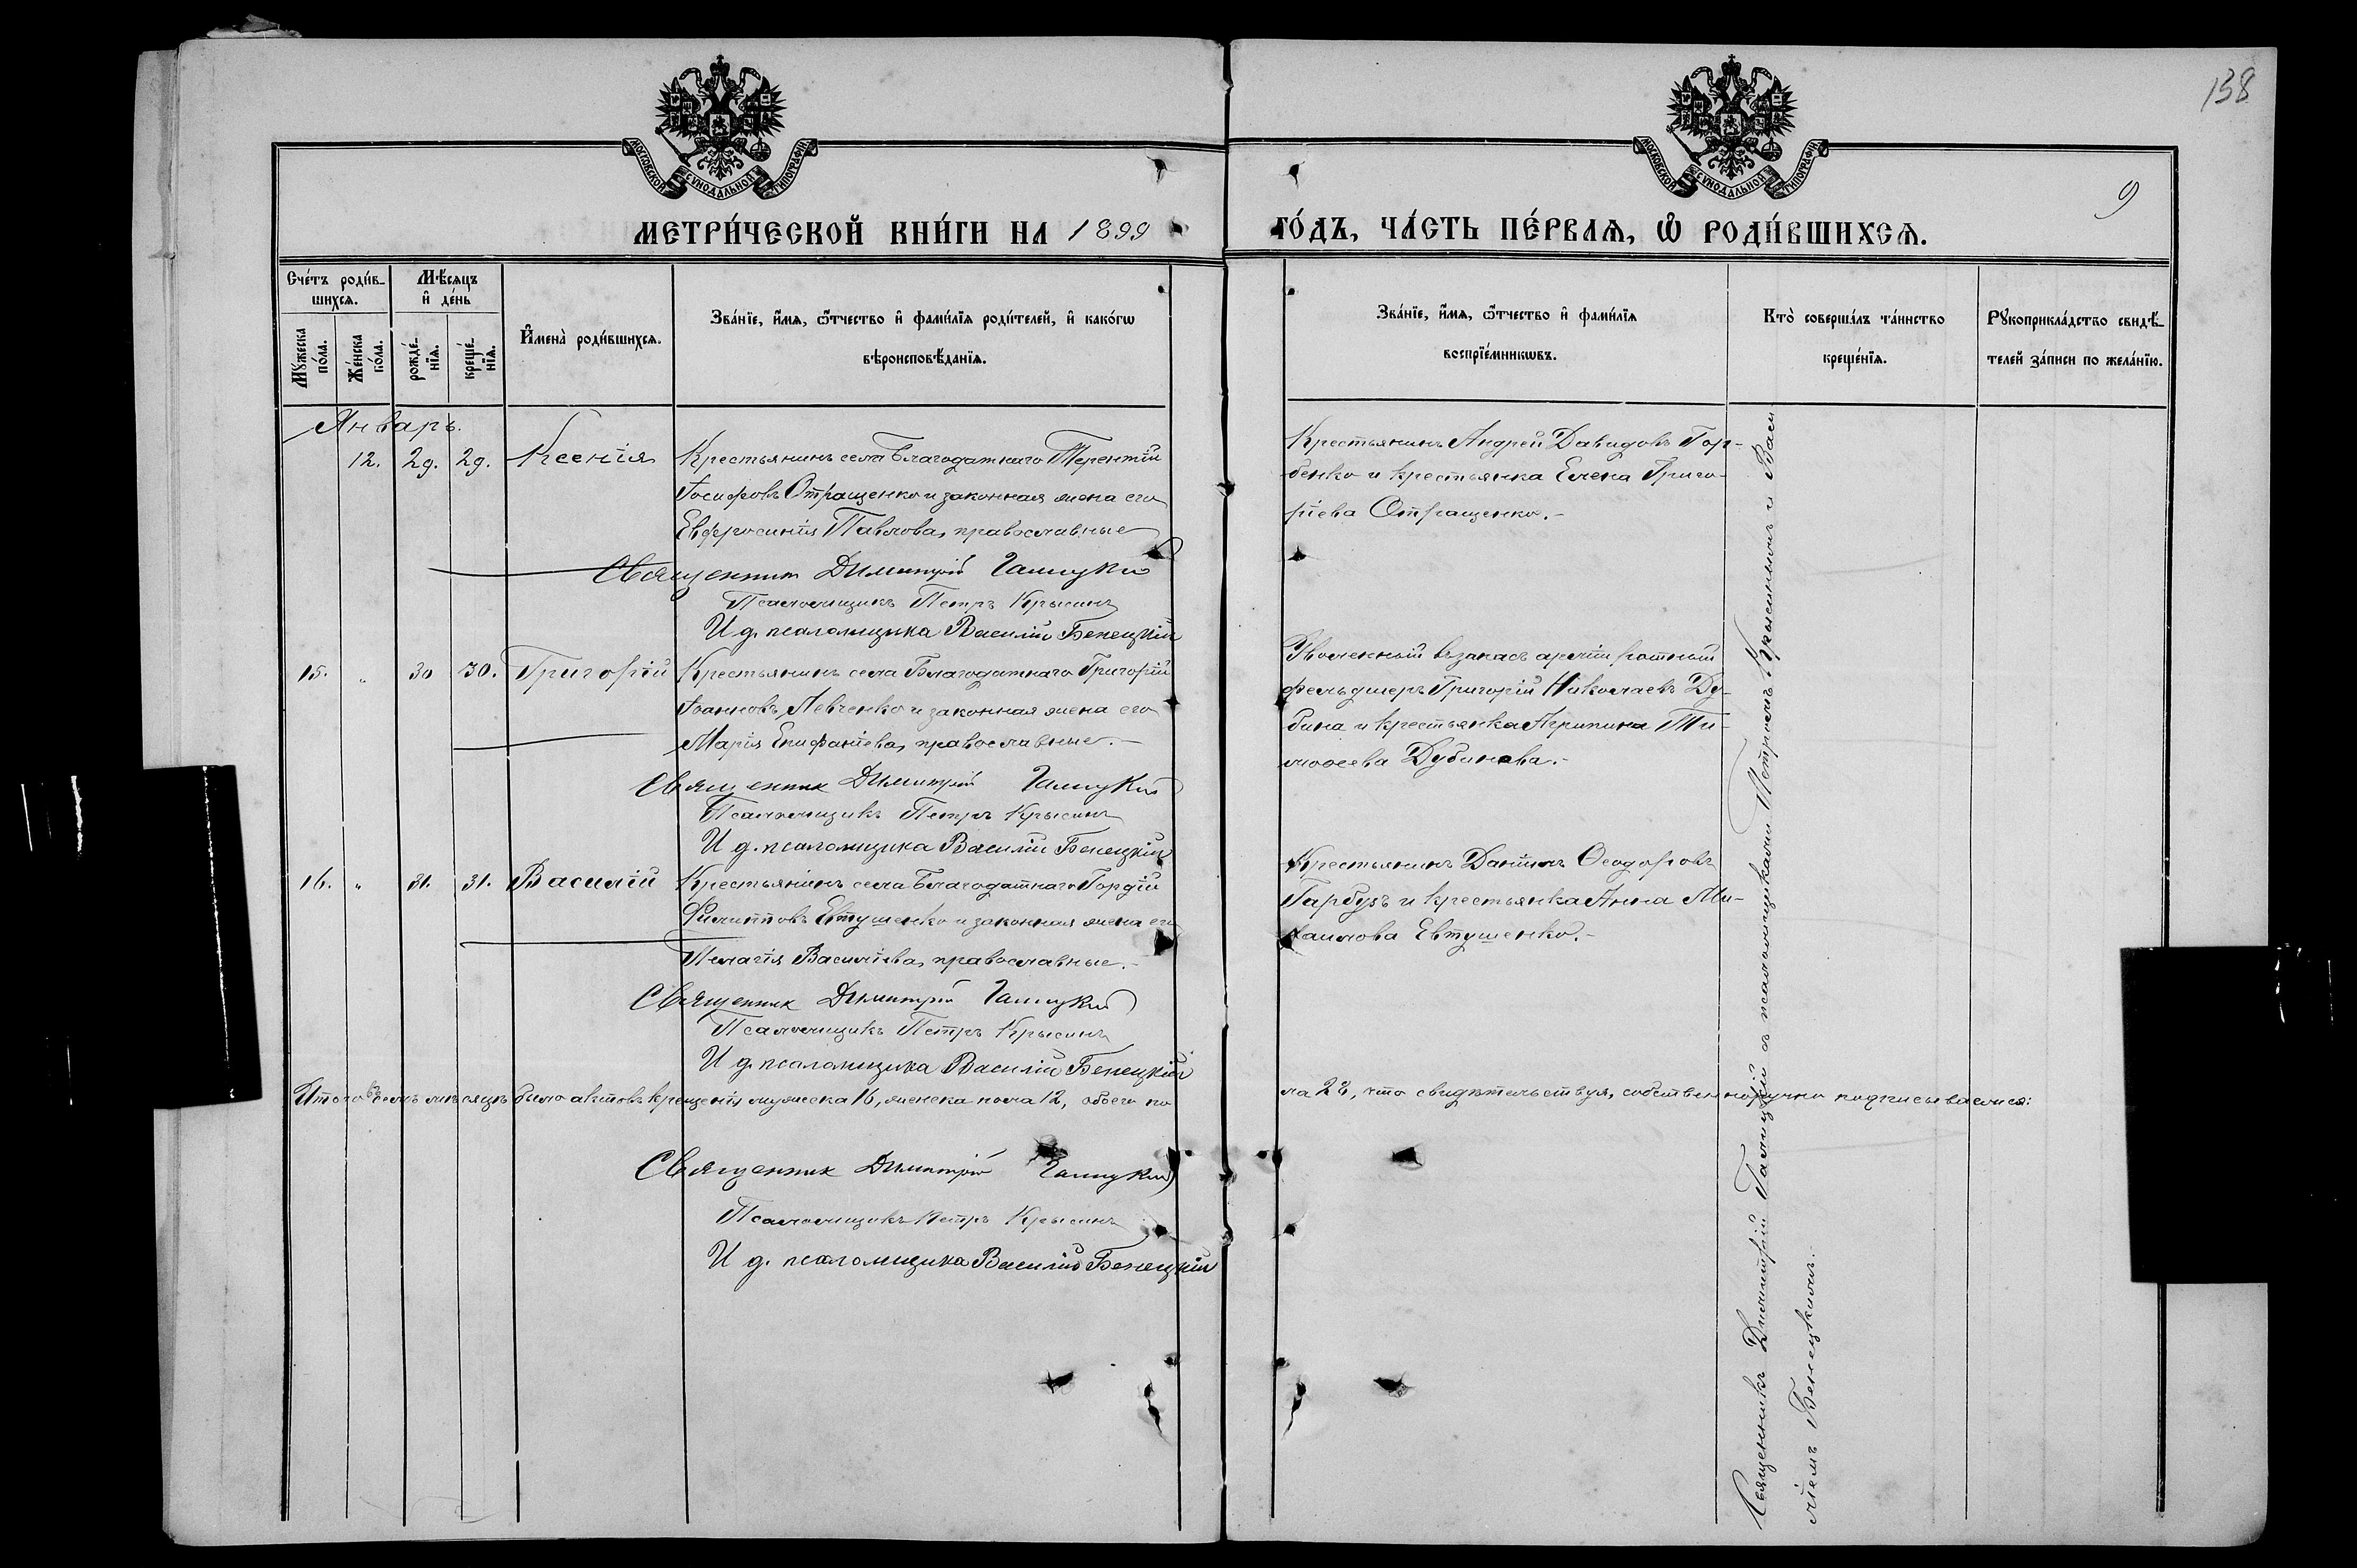 138
9
МОСКОВСКОЙ СѴНОДАЛЬНОЙ ТИПОГРАФІИ
МОСКОВСКОЙ СѴНОДАЛЬНОЙ ТИПОГРАФІИ
МЕТРИ́ЧЕСКОЙ КНИ́ГИ НА 1899
ГО́ДЪ, ЧА́СТЬ ПЕ́РВАѦ, Ѡ РОДИ́ВШИХСѦ.
Сче́тъ роди́в-
шихсѧ.
Мѣ́сѧцъ
и҆ де́нь
Мꙋ́жеска
по́ла.
Же́нска
по́ла.
рожде́-
нїѧ.
креще́-
нїѧ.
И҆мена̀ роди́вшихсѧ.
Зва́нїе, и҆́мѧ, ѻ҆́тчество и҆ фами́лїѧ роди́телей, и҆ како́гѡ
вѣроисповѣ́данїѧ.
Зва́нїе, и҆́мѧ, ѻ҆́тчество и҆ фами́лїѧ
воспрїе́мникѡвъ.
Кто̀ соверша́лъ та́инство
креще́нїѧ.
Рꙋкоприкла́дство свидѣ́-
телей за́писи по жела́нїю.
Январь.
12. 29. 29. Ксенія Крестьянинъ села Благодатнаго Терентій
Іосифовъ Отращенко и законная жена его
Евфросинія Павлова, православные
Священник Димитрій Галицкій
Псаломщикъ Петръ Крысинъ
И д. псаломщика Василій Бенецкій
Крестьянинъ Андрей Давидовъ Гор-
бенко и крестьянка Елена Григо-
ріева Отращенко.-
15. " 30 30. Григорій Крестьянинъ села Благодатнаго Григорій
Іоанновъ Левченко и законная жена его
Марія Епифаніева, православные.-
Священник Димитрій Галицкій
Псаломщикъ Петръ Крысинъ
И д. псаломщика Василій Бенецкій
Уволенный въ запасъ арміи ротный
фельдшеръ Григорій Николаевъ Ду-
бина и крестьянка Агрипина Ти-
моѳеева Дубинова.-
16. " 31. 31. Василій Крестьянинъ села Благодатнаго Гордій
Филипповъ Евтушенко и законная жена его
Пелагія Василіева, православные.-
Священник Димитрій Галицкій
Псаломщикъ Петръ Крысинъ
И д. псаломщика Василій Бенецкій
Крестьянинъ Даніилъ Ѳеодоровъ
Гарбузъ и крестьянка Анна Ми-
хаилова Евтушенко.-
Итого въ семъ мѣсяцѣ было актовъ крещенія мужеска 16, женска пола 12, обоего по
ла 28, что свидѣтельствуя, собственноручно подписываемся:
Священник Димитрій Галицкій
Псаломщикъ Петръ Крысинъ
И д. псаломщика Василій Бенецкій
Священникъ Димитрій Галицкій съ псаломщиками Петромъ Крысинымъ и Васи
ліемъ Бенецкимъ.